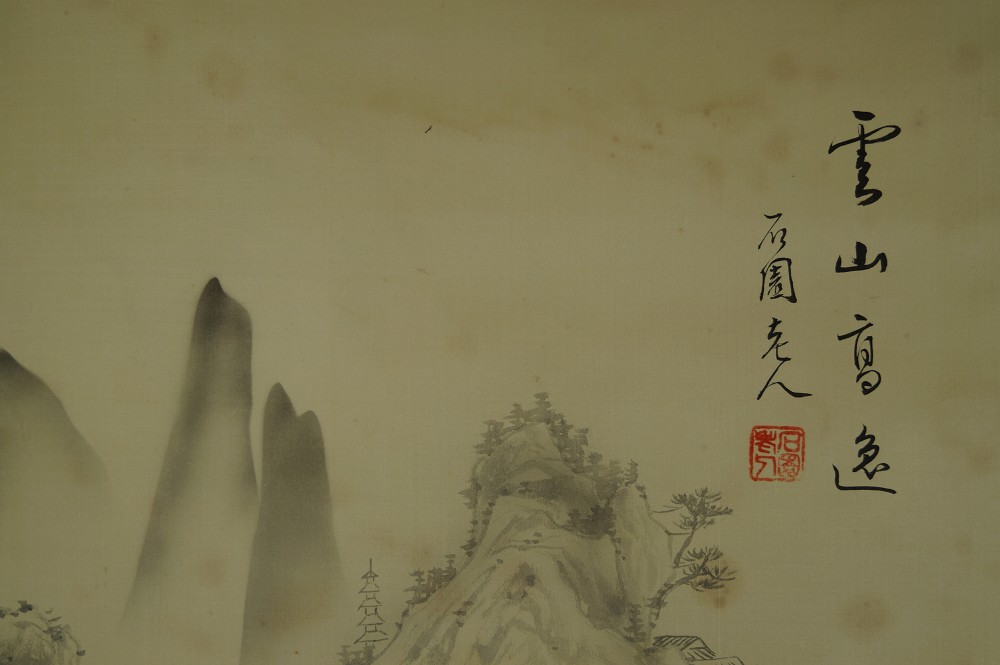 雲山高逸
石園老人
石園老人